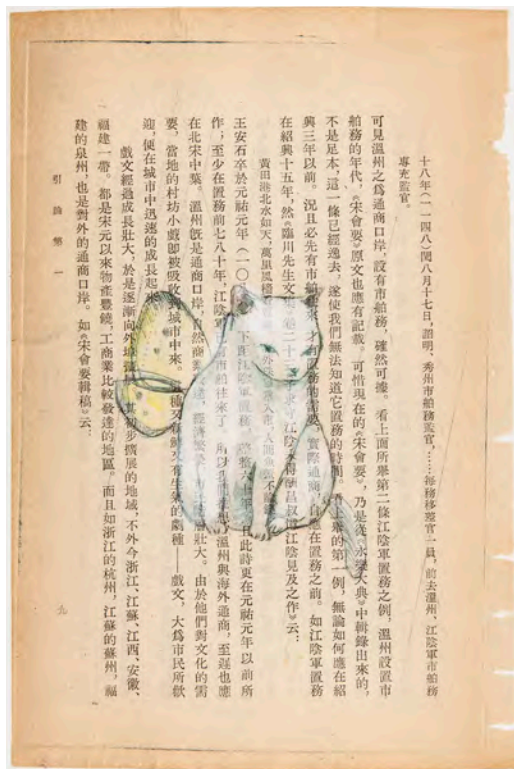 十八年(一一四八)閏八月十七日,詔明、秀州市舶務監官,……每務移差官一員,前去溫州、江陰軍市舶務
專充監官。
可見溫州之爲通商口岸,設有市舶務,確然可據。看上面所舉第二條江陰置務之例,溫州設置市
舶務的年代,《宋會要》原文也應有記載。可惜現在的《宋會要》,乃是從《永樂大典》中輯錄出來的,
不是足本,這一條已經逸去,遂使我們無法知道它置務的時間。上舉的第一例,無論如何應在紹
興三年以前。況且必先有市舶往來,才有置務的需要,實際通商,自應在置務之前。如江陰軍置務
在紹興十五年,然《臨川先生文集》卷二十三 求守江陰未得酬昌叔憶江陰見及之作》云:
黃田港北水如天,萬里風檣 入市,人間魚蟹不論
王安石卒於元祐元年(一〇 下距江陰軍置務, 整六十年,且此詩更在元祐元年以前所
作;至少在置務前七八十年,江陰軍已有市舶往來了。所以 溫州與海外通商,至遲也應
在北宋中葉。溫州旣是通商口岸,自然商業發達,經濟繁榮, 壯大。由於他們對文化的需
要,當地的村坊小戲卽被吸收到城市中來。這種又新鮮又有生氣的劇種——戲文,大爲市民所歡
迎,便在城市中迅速的成長起來
戲文經過成長壯大,於是逐漸向外地 其初步擴展的地域,不外今浙江、江蘇、江西、安徽、
福建一帶。都是宋元以來物產豐饒,工商業比較發達的地區。而且如浙江的杭州,江蘇的蘇州,福
建的泉州,也是對外的通商口岸。如《宋會要輯稿》云:
引論第一
九